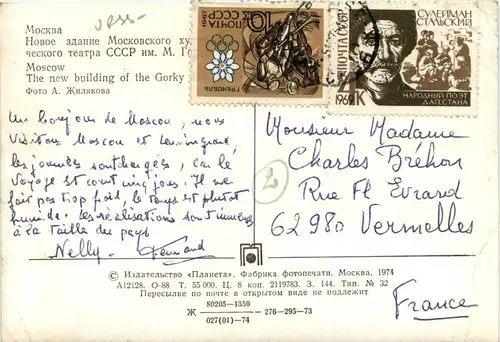 URSS-
Москва
Новое здание Московского ху
ческого театра СССР им. М. Г
Moscow
The new building of the Gorky
Фото А. Жилякова
ПОЧТА СССР
10К
1967
ГРЕНОБЛЬ
СУЛЕЙМАН
СТАЛЬСКИЙ
ПОЧТА СССР
1969
4К
НАРОДНЫЙ ПОЭТ
ДАГЕСТАНА
Un bonjour de Moscou, nous
visitons Moscou et Leningrad,
les journées sont chargées, car le
voyage est court cinq jours. Il ne
fait pas trop froid, le temps est plutôt
humide. Les réalisations sont immenses
à la taille du pays
Nelly. Fernand
Monsieur Madame
Charles Bréhon
Rue Fl Evrard
62980 Vermelles
France
2
© Издательство «Планета». Фабрика фотопечати. Москва, 1974
А12128. О-88 Т. 55 000. Ц. 8 коп. 2119783. З. 144. Тип. № 32
Пересылке по почте в открытом виде не подлежит
Ж 80205—1350
027(01)—74 —276—295—73